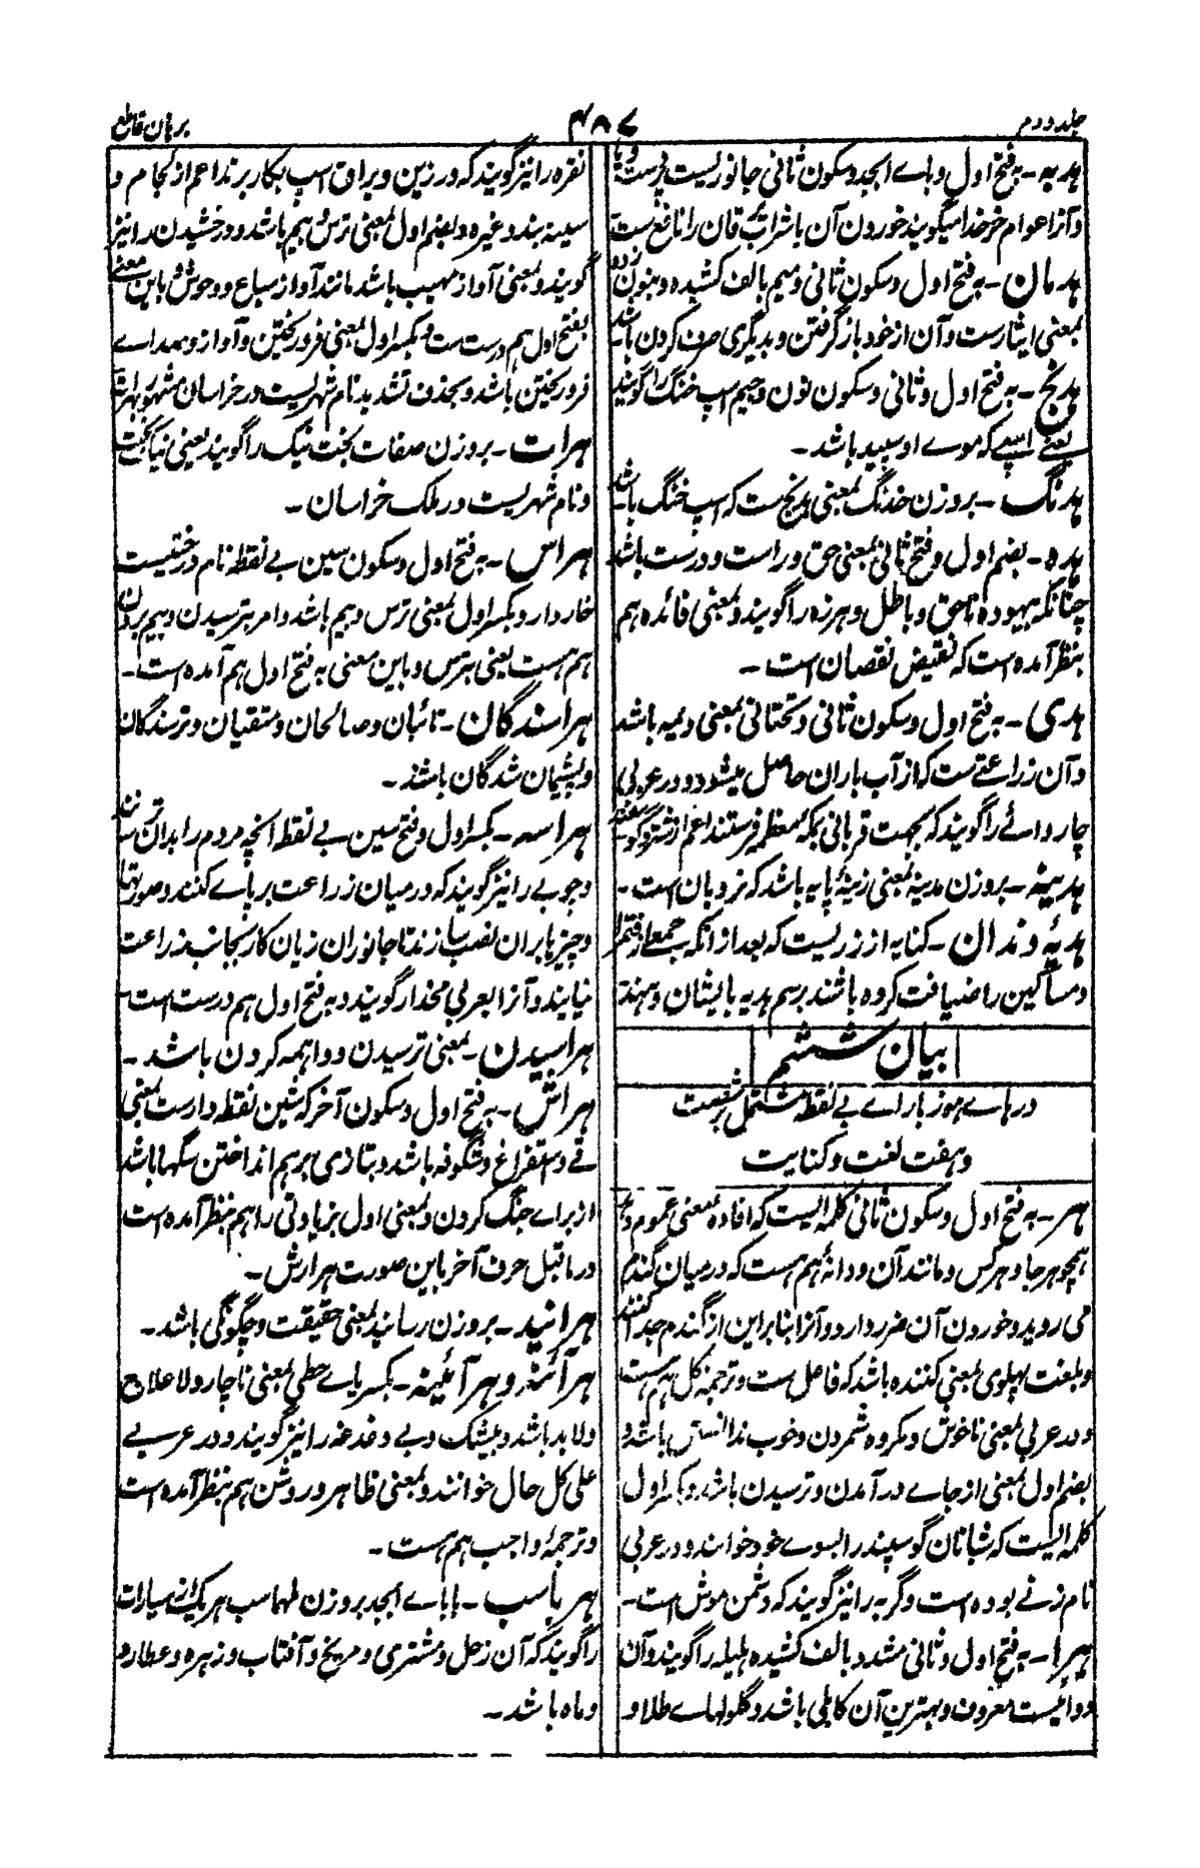 جلد دوم
۴۸۷
برہان قاطع
ہدبہ - بہ فتح اول و باے ابجد و سکون ثانی جانوریست پردست و پا
و آنرا عوام خر خدا میگویند خوردن آن با شراب یرقان را نافع ست
ہدمان - بہ فتح اول و سکون ثانی و میم بالف کشیدہ و بنون زدہ
بمعنی ایثارست و آن از خود باز گرفتن و بدیگری صرف کردن باشد
ہدنج - بہ فتح اول و ثانی و سکون نون و جیم اسپ خنگ را گویند
یعنے اسپے کہ موے او سپید باشد -
ہدنگ - بروزن خدنگ بمعنی ہدنج ست کہ اسپ خنگ باشد
ہدہ - بضم اول و فتح ثانی بمعنی حق و راست و درست باشد
چنانکہ بیہودہ ناحق و باطل و ہرزہ را گویند و بمعنی فائدہ ہم
بنظر آمدہ است کہ نقیض نقصان است -
ہدی - بہ فتح اول و سکون ثانی و تحتانی بمعنی دیمہ باشد
و آن زراعتے ست کہ از آب باران حاصل میشود و در عربی
چاروائے را گویند کہ بجہت قربانی بمکہ معظمہ فرستند اعم از شتر و گوسفند
ہدینہ - بروزن مدینہ بمعنی زینہ پایہ باشد کہ نردبان است -
ہدیۂ دندان - کنایہ از زریست کہ بعد از آنکہ جمعے از فقرا
و مساکین را ضیافت کردہ باشند برسم ہدیہ بایشان دہند
بیان ششم
در ہاے ہوز با راے بے نقطہ مشتمل بر شصت
و ہفت لغت و کنایت
ہر - بہ فتح اول و سکون ثانی کلمہ ایست کہ افادہ معنی عموم دہد
ہمچو ہرجا و ہرکس و مانند آن و دانۂ ہم ہست کہ درمیان گندم
می روید و خوردن آن ضرر دارد و آنرا بنابراین از گندم جدا کنند
و بلغت پہلوی بمعنی کنندہ باشد کہ فاعل ست و ترجمہ کل ہم ہست
و در عربی بمعنی ناخوش و مکروہ شمردن و خوب ندانستن باشد و
بضم اول بمعنی از جاے در آمدن و ترسیدن باشد و بکسر اول
کلمہ ایست کہ شبانان گوسپند را بسوے خود خوانند و در عربی
نام زنے بودہ است و گربہ را نیز گویند کہ دشمن موش است -
ہرا - بہ فتح اول و ثانی مشدد بالف کشیدہ ہلیلہ را گویند و آن
دوائیست معروف و بہترین آن کابلی باشد و گلولہاے طلا و
نقرہ را نیز گویند کہ در زین و یراق اسپ بکار برند اعم از لجام و
سینہ بند و غیرہ و بضم اول بمعنی ترس و بیم باشد و درخشیدن را نیز
گویند و بمعنی آواز مہیب باشد مانند آواز سباع و وحوش باین معنے
بفتح اول ہم درست ست و بکسر اول بمعنی فرو ریختن و آواز و صداے
فرو ریختن باشد و بحذف تشدید نام شہریست در خراسان مشہور بہرات
ہرات - بروزن صفات بخت نیک را گویند یعنی نیک بخت
و نام شہریست در ملک خراسان -
ہراس - بہ فتح اول و سکون سین بے نقطہ نام درختیست
خاردار و بکسر اول بمعنی ترس و بیم باشد و امر بترسیدن و بیم بردن
ہم ہست یعنی بترس و باین معنی بہ فتح اول ہم آمدہ است -
ہراسندگان - تائبان و صالحان و متقیان و ترسندگان
و پشیمان شدگان باشند -
ہراسہ - بکسر اول و فتح سین بے نقطہ انچہ مردم را بدان ترسانند
و چوبے را نیز گویند کہ درمیان زراعت بر پاے کنند و صورتہا
و چیزہا بران نصب سازند تا جانوران زیان کار بجانب زراعت
نیایند و آنرا بعربی مخدار گویند و بہ فتح اول ہم درست است
ہراسیدن - بمعنی ترسیدن و واہمہ کردن باشد -
ہراش - بہ فتح اول و سکون آخر کہ شین نقطہ دارست بمعنی
قے و استفراغ و شگوفہ باشد و بتازی برہم انداختن سگہا باشد
از براے جنگ کردن و بمعنی اول بزیادتی را ہم بنظر آمدہ است
در ماقبل حرف آخر باین صورت ہرارش -
ہرانید - بروزن رسانید بمعنی حقیقت و چگونگی باشد -
ہرآئنہ و ہرآئینہ - بکسر یاے حطی بمعنی ناچار و لا علاج
و لا بد باشد و بیشک و بے دغدغہ را نیز گویند و در عربے
علی کل حال خوانند و بمعنی ظاہر و روشن ہم بنظر آمدہ است
و ترجمۂ واجب ہم ہست -
ہرباسپ - با باے ابجد بروزن طہماسپ ہریک از سیارات
را گویند کہ آن زحل و مشتری و مریخ و آفتاب و زہرہ و عطارد
و ماہ باشد -